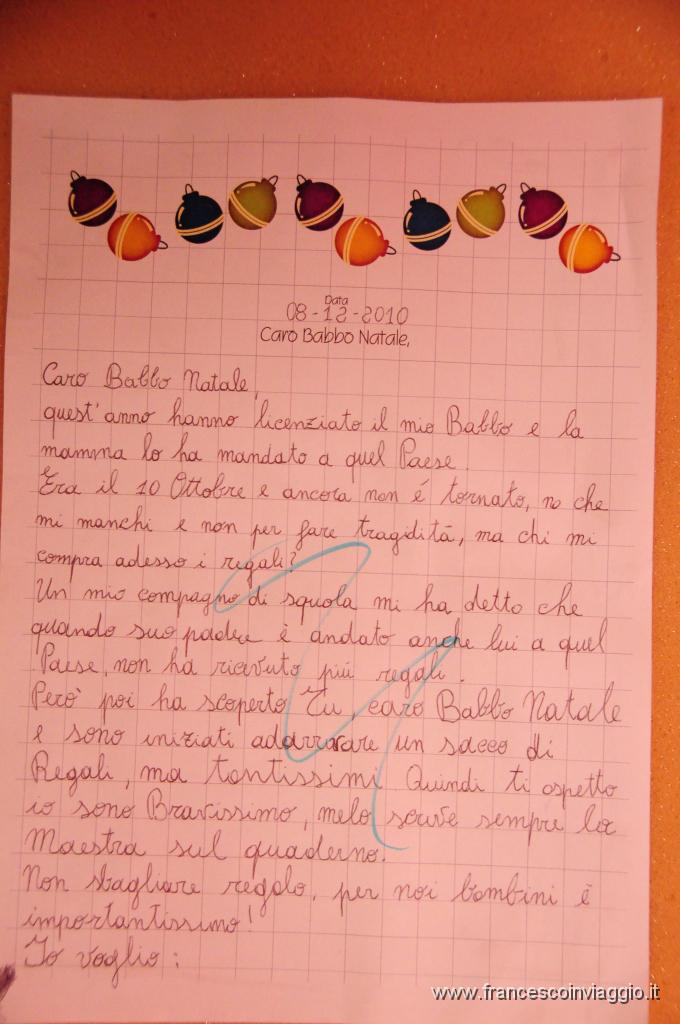 Data
08-12-2010
Caro Babbo Natale,
Caro Babbo Natale,
quest'anno hanno licenziato il mio Babbo e la
mamma lo ha mandato a quel Paese.
Era il 10 Ottobre e ancora non é tornato, no che
mi manchi e non per fare tragidità, ma chi mi
compra adesso i regali?
Un mio compagno di squola mi ha detto che
quando suo padre è andato anche lui a quel
Paese, non ha ricevuto più regali.
Però poi ha scoperto Tu, caro Babbo Natale
e sono iniziati adarrivare un sacco di
Regali, ma tantissimi. Quindi ti aspetto
io sono Bravissimo, melo scrive sempre la
Maestra sul quaderno.
Non sbagliare regalo, per noi bambini è
importantissimo!
Io voglio:
www.francescoinviaggio.it